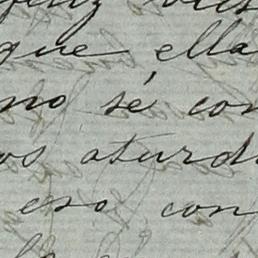 que ella
no sé con
os aturd
eso con